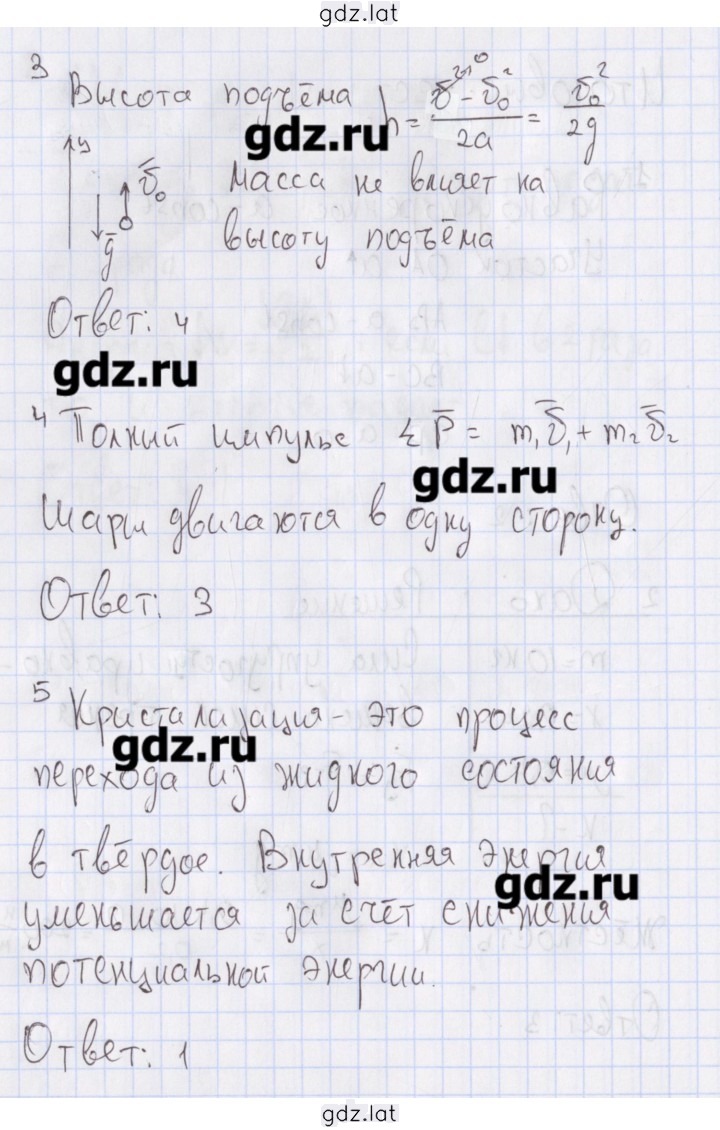 gdz.lat
3 Высота подъёма h = (υ² - υ₀²)/2a = υ₀²/2g
gdz.ru
y
ῡ₀ Масса не влияет на
g̅ высоту подъёма
Ответ: 4
gdz.ru
4 Полный импульс Σ P̅ = m₁ῡ₁ + m₂ῡ₂
gdz.ru
Шары двигаются в одну сторону.
Ответ: 3
5 Кристализация - это процесс
gdz.ru
перехода из жидкого состояния
в твёрдое. Внутренняя энергия
gdz.ru
уменьшается за счёт снижения
потенциальной энергии.
Ответ: 1
gdz.lat